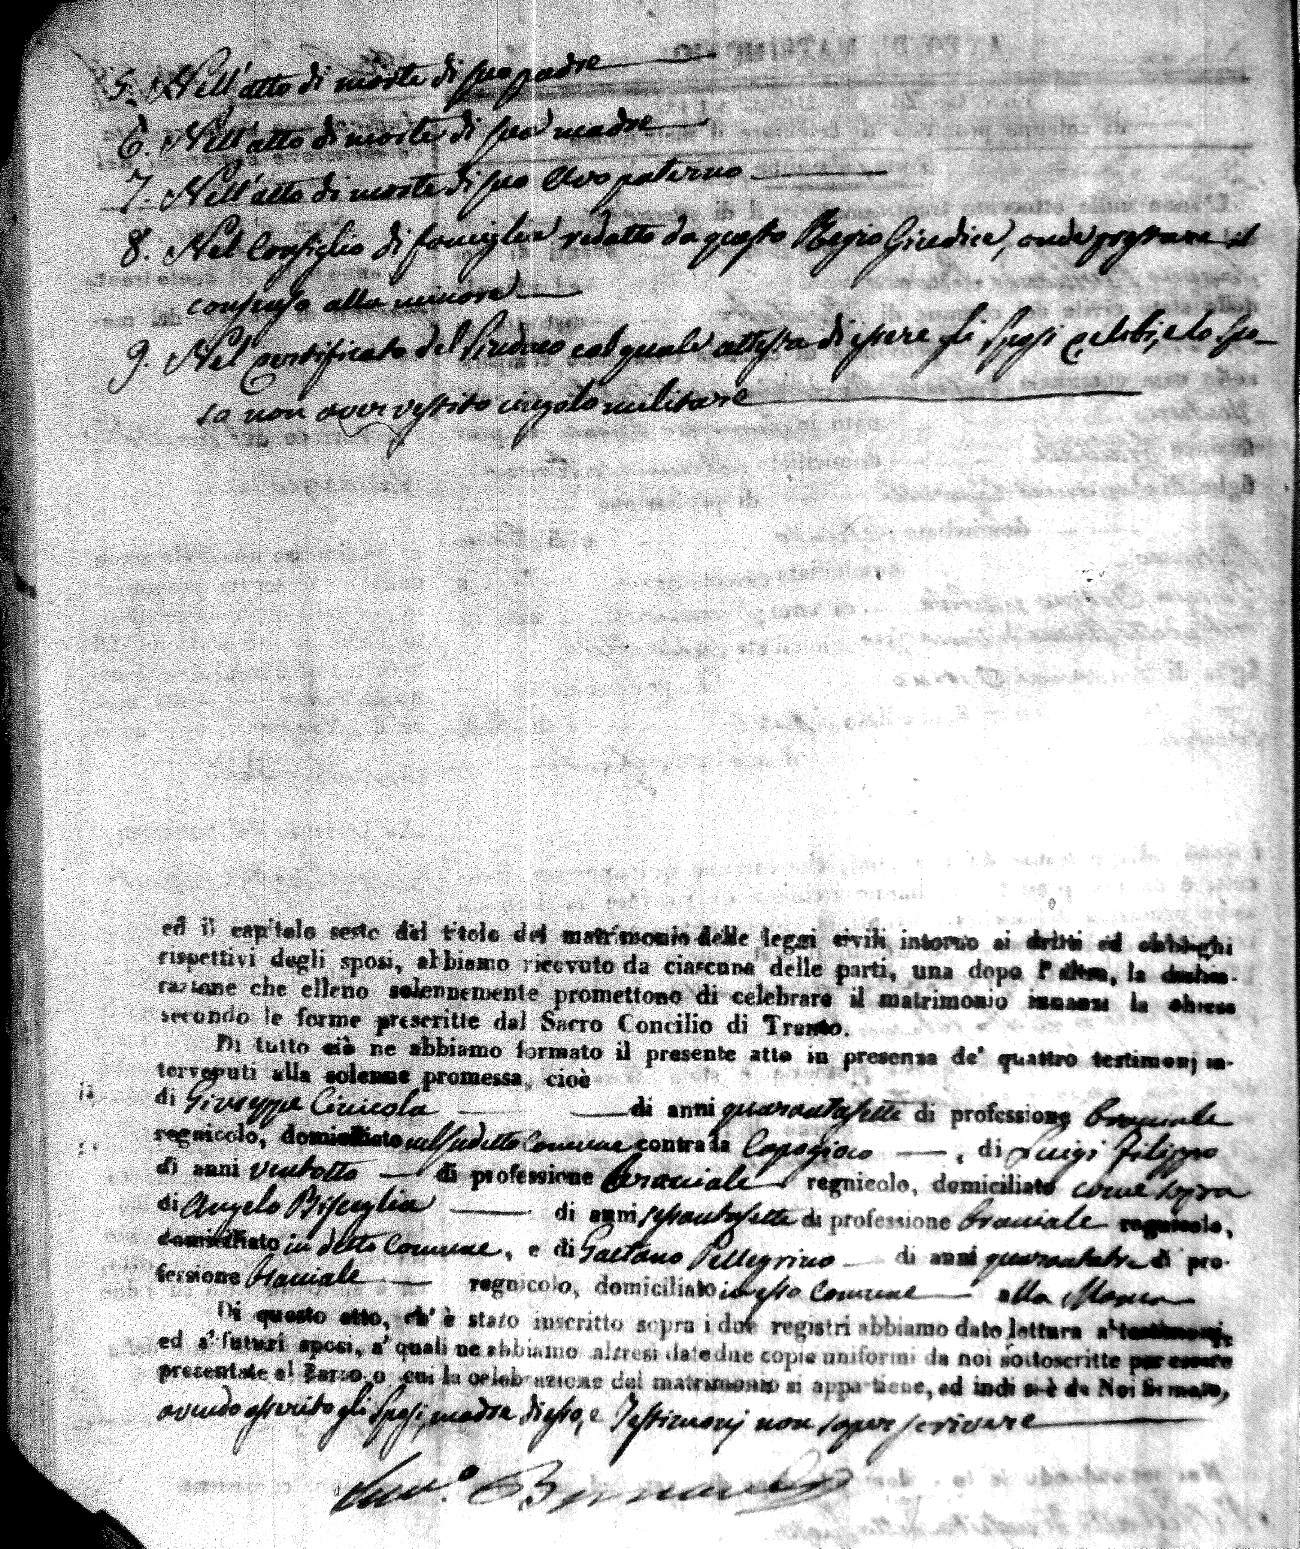 5. Nell'atto di morte di suo padre
6. Nell'atto di morte di sua madre
7. Nell'atto di morte di suo Avo paterno
8. Nel Consiglio di famiglia redatto da questo Regio Giudice, onde prestare il
consenso alla minore
9. Nel Certificato del Sindaco col quale attesta di essere gli Sposi celibi, e lo spo-
so non aver vestito cingolo militare
ed il capitolo sesto del titolo del matrimonio delle leggi civili intorno ai dritti ed obblighi
rispettivi degli sposi, abbiamo ricevuto da ciascuna delle parti, una dopo l'altra, la dichia-
razione che elleno solennemente promettono di celebrare il matrimonio innanzi la chiesa
secondo le forme prescritte dal Sacro Concilio di Trento.
Di tutto ciò ne abbiamo formato il presente atto in presenza de' quattro testimonj in-
tervenuti alla solenne promessa, cioè
di Giuseppe Cinicola di anni quarantasette di professione braciale
regnicolo, domiciliato nell'sudetto Comune contrada Capogioco, di Luigi Filippo
di anni ventotto di professione braciale regnicolo, domiciliato come sopra
di Angelo Bisceglia di anni sessantasette di professione braciale regnicolo,
domiciliato in detto Comune, e di Gaetano Pellegrino di anni quarantatre di pro-
fessione braciale regnicolo, domiciliato in esso Comune alla Manca
Di questo atto, ch' è stato inscritto sopra i due registri abbiamo dato lettura a' testimonj,
ed a' futuri sposi, a' quali ne abbiamo altresì date due copie uniformi da noi sottoscritte per essere
presentate al Parroco, o cui la celebrazione del matrimonio si appartiene, ed indi si è da Noi firmato,
avendo asserito gli Sposi, madre di essa, e Testimonj non saper scrivere